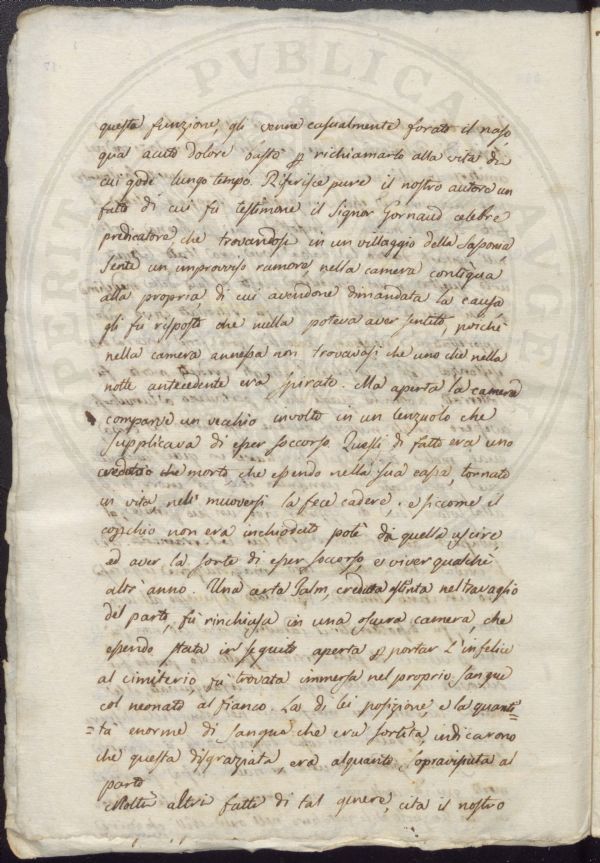 PERUSIA AUGUSTA
PVBLICA
questa funzione, gli venne casualmente forato il naso,
qual acuto dolore bastò p richiamarlo alla vita di
cui godè lungo tempo. Riferisce pure il nostro autore un
fatto di cui fù testimone il Signor Gornaud celebre
predicatore, che trovandosi in un villaggio della Sassonia
sente un improvviso rumore nella camera contigua
alla propria, di cui avendone dimandata la causa
gli fù risposto che nulla poteva aver sentito, poichè
nella camera annessa non trovavasi che uno che nella
notte antecedente era spirato. Ma aperta la camera
comparve un vecchio involto in un lenzuolo che
supplicava di esser soccorso. Quelli di fatto era uno
creduto che morto, che essendo nella sua cassa, tornato
in vita nell' muoversi la fece cadere, e siccome il
coperchio non era inchiodato potè da quella uscire,
ed aver la sorte di esser soccorso, e viver qualche
altr' anno. Una certa Palm, creduta estinta nel travaglio
del parto, fù rinchiusa in una oscura camera, che
essendo stata in seguito aperta p portar l'infelice
al cimiterio, fù trovata immersa nel proprio sangue
col neonato al fianco. La di lei posizione, e la quanti=
=tà enorme di sangue che era sortita, indicarono
che questa disgraziata, era alquanto sopravissuta al
parto
Molti altri fatti di tal genere, cita il nostro